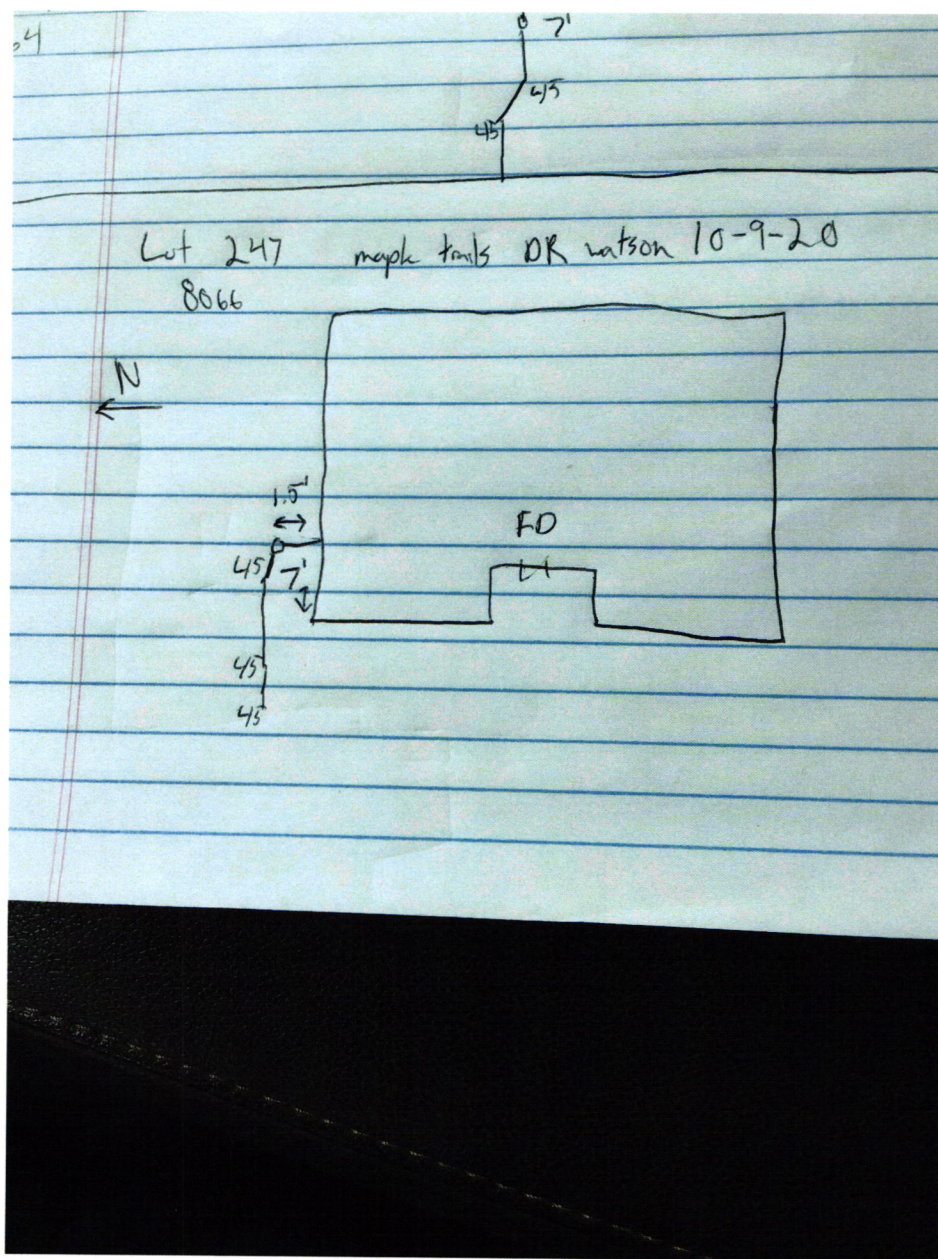 7'
45
45
Lot 247 maple trails DR watson 10-9-20
8066
N
1.5'
FD
45
7'
45
45